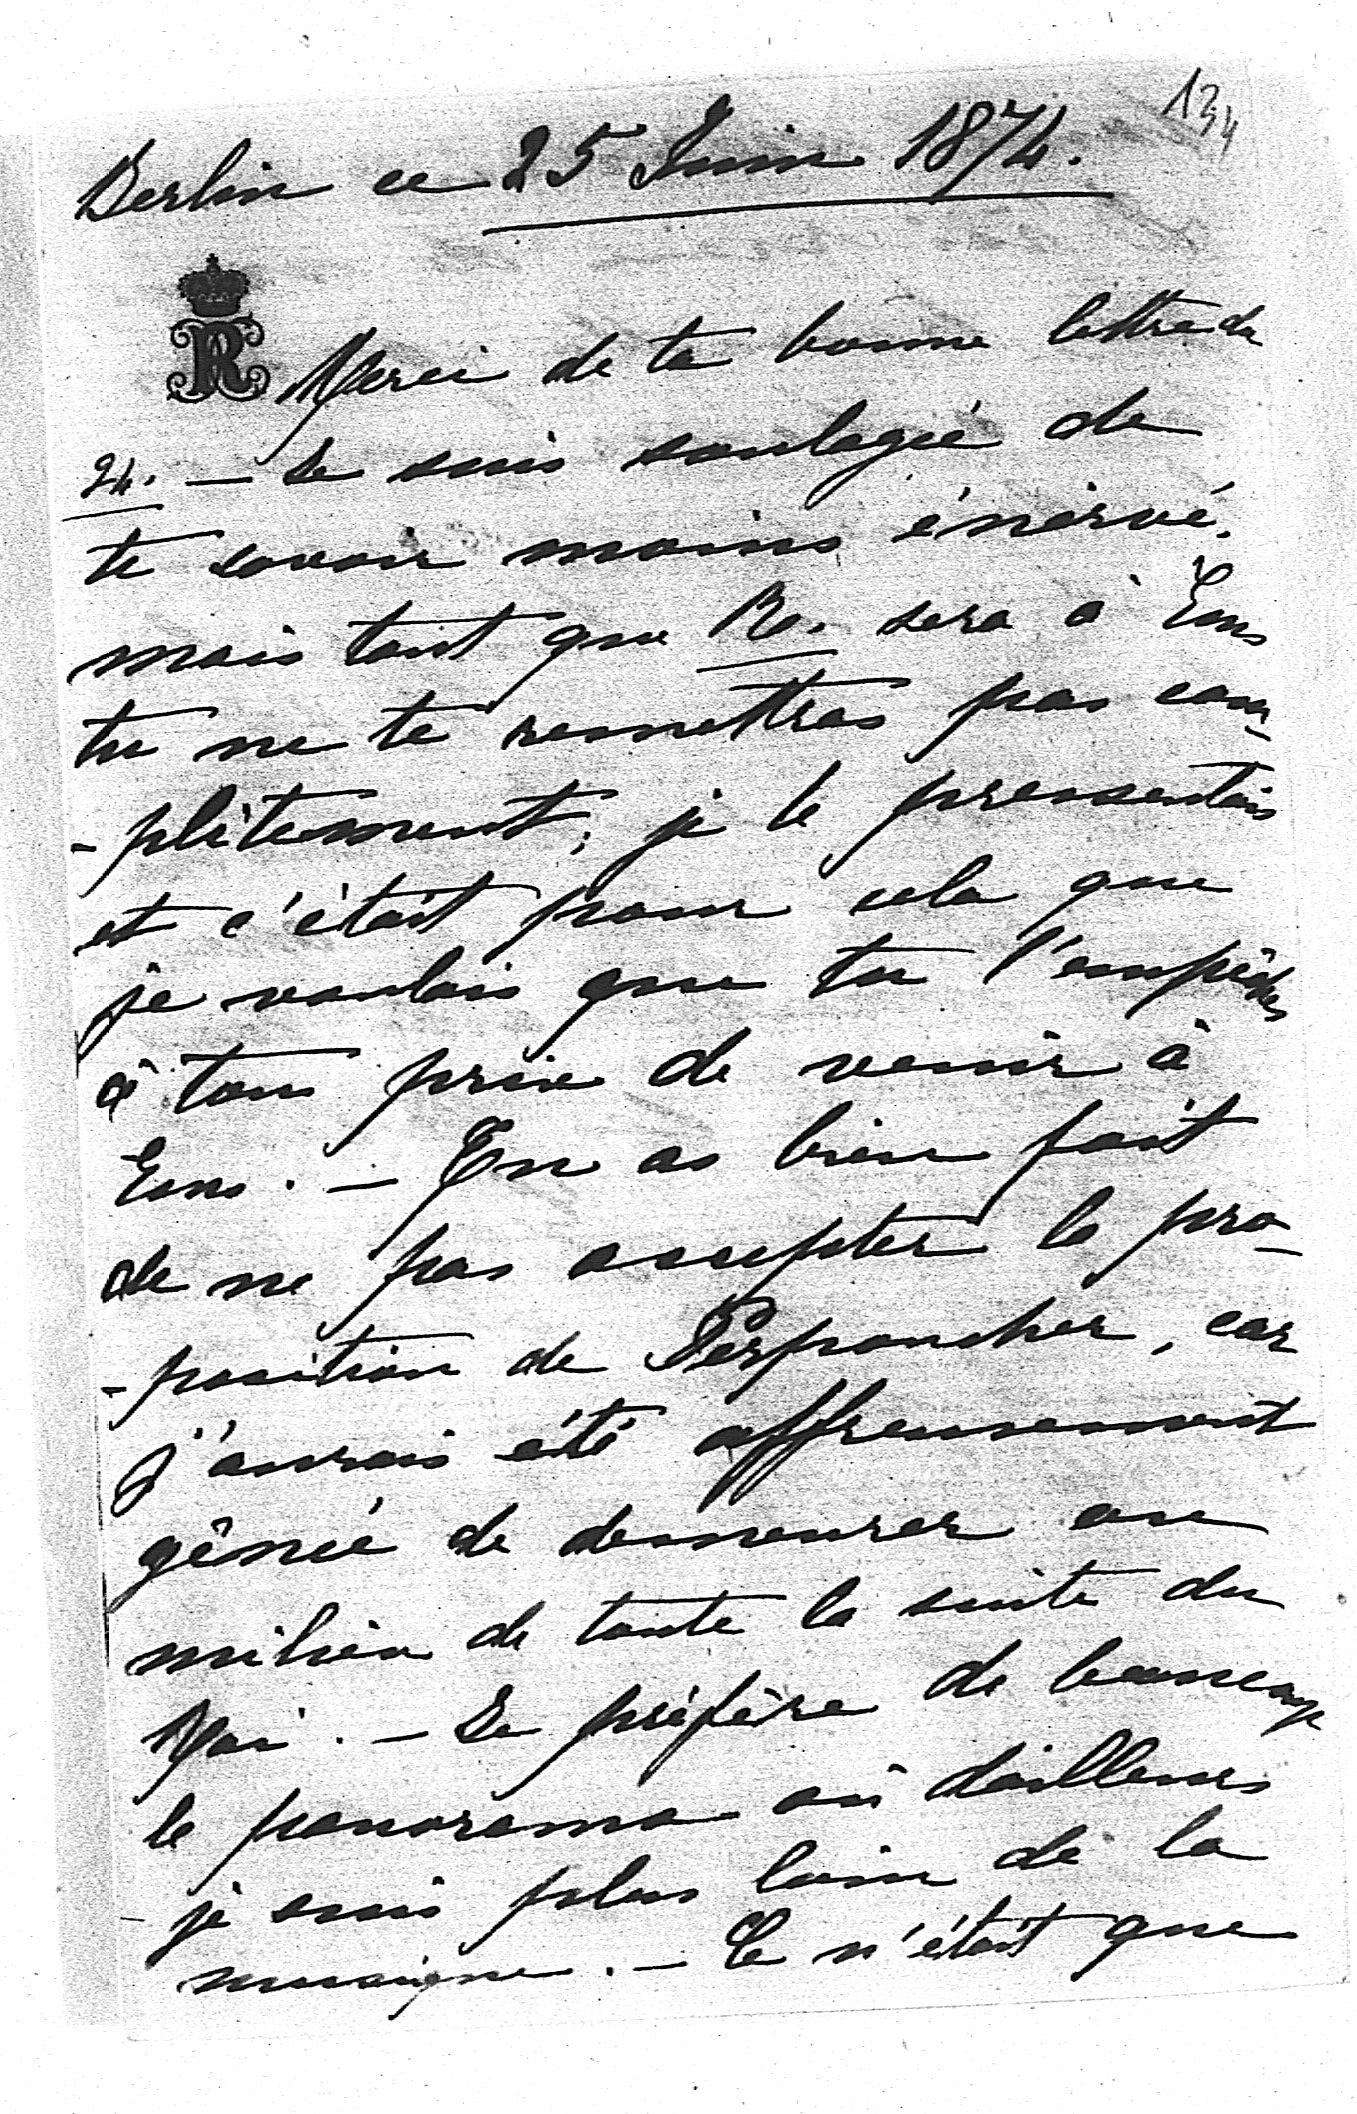 134
Berlin ce 25 Juin 1874.
R Merci de ta bonne lettre du
24. — Je suis soulagé de
te savoir moins énervé.
mais tant que Ro. sera à Ems
tu ne te remettras pas com-
-plètement; je le pressentais
et c'était pour cela que
je voulais que tu l'empêches
à tout prix de venir à
Ems. — Tu as bien fait
de ne pas accepter la pro-
-position de Perponcher, car
j'aurais été affreusement
gêné de demeurer au
milieu de toute la suite du
Roi. — Je préfère de beaucoup
le panorama où d'ailleurs
je suis plus loin de la
musique. — Ce n'était que